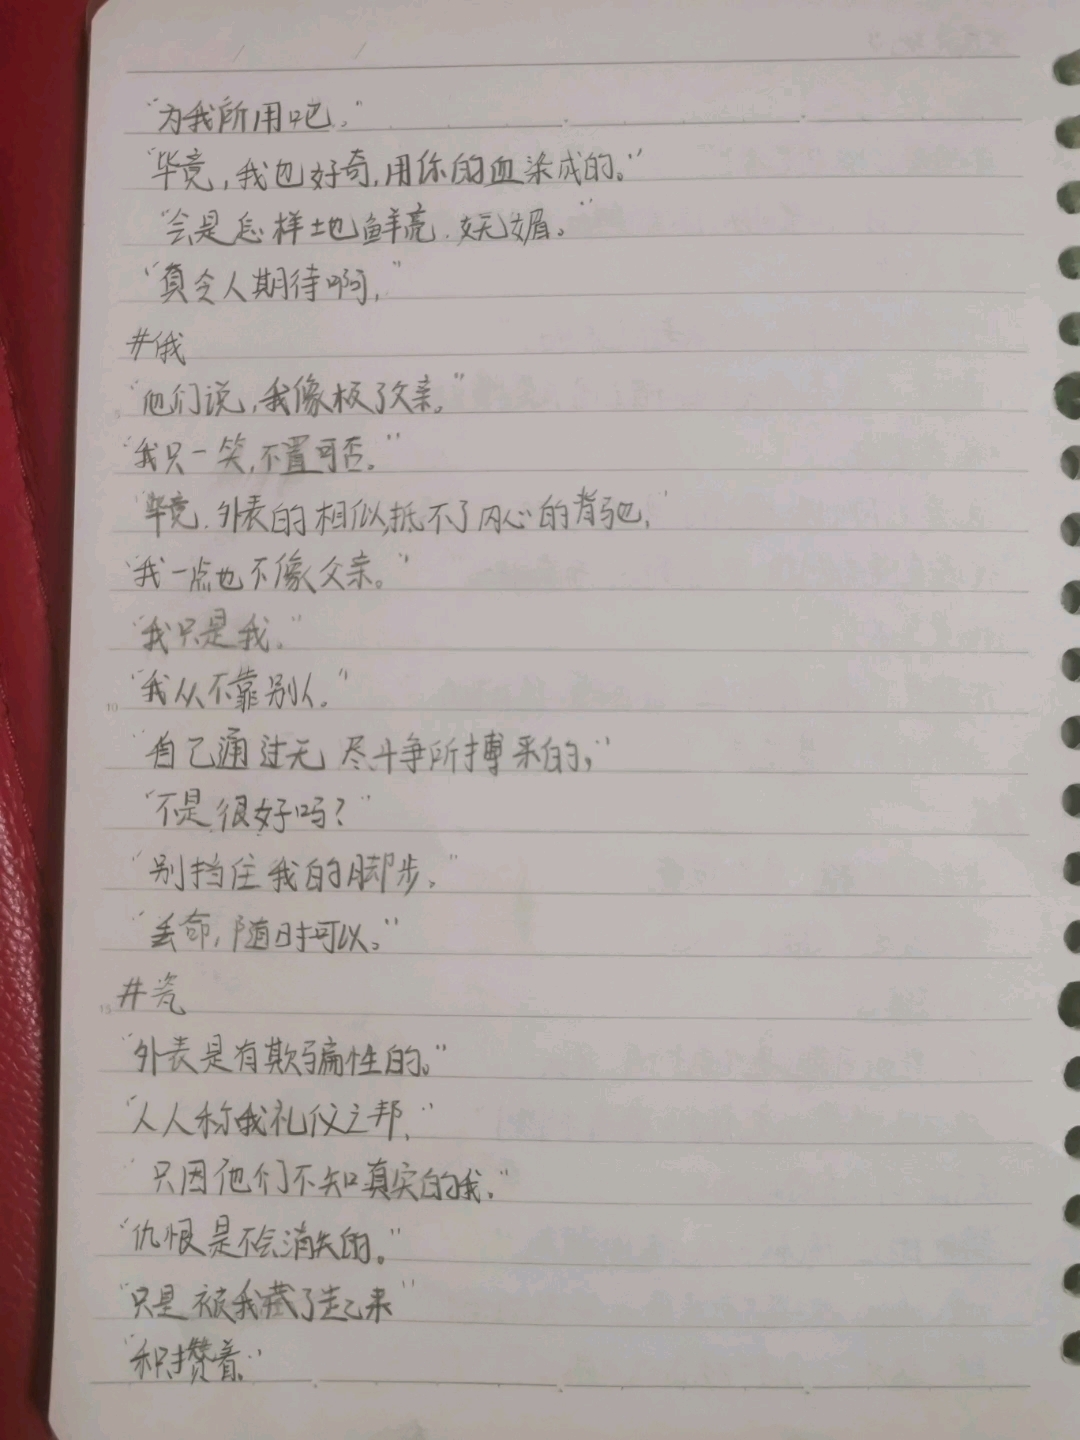 “为我所用吧。”
“毕竟，我也好奇，用你的血染成的。”
“会是怎样地鲜亮，妖媚。”
“真令人期待啊，”
#俄
“他们说，我像极了父亲。”
“我只一笑，不置可否。”
“毕竟，外表的相似，抵不了内心的背驰，”
“我一点也不像父亲。”
“我只是我。”
“我从不靠别人。”
“自己通过无尽斗争所搏来的，”
“不是很好吗？”
“别挡住我的脚步，”
“丢命，随时可以。”
#瓷
“外表是有欺骗性的。”
“人人称我礼仪之邦，”
“只因他们不知真实的我。”
“仇恨是不会消失的。”
“只是被我藏了起来”
“积攒着。”
10
15